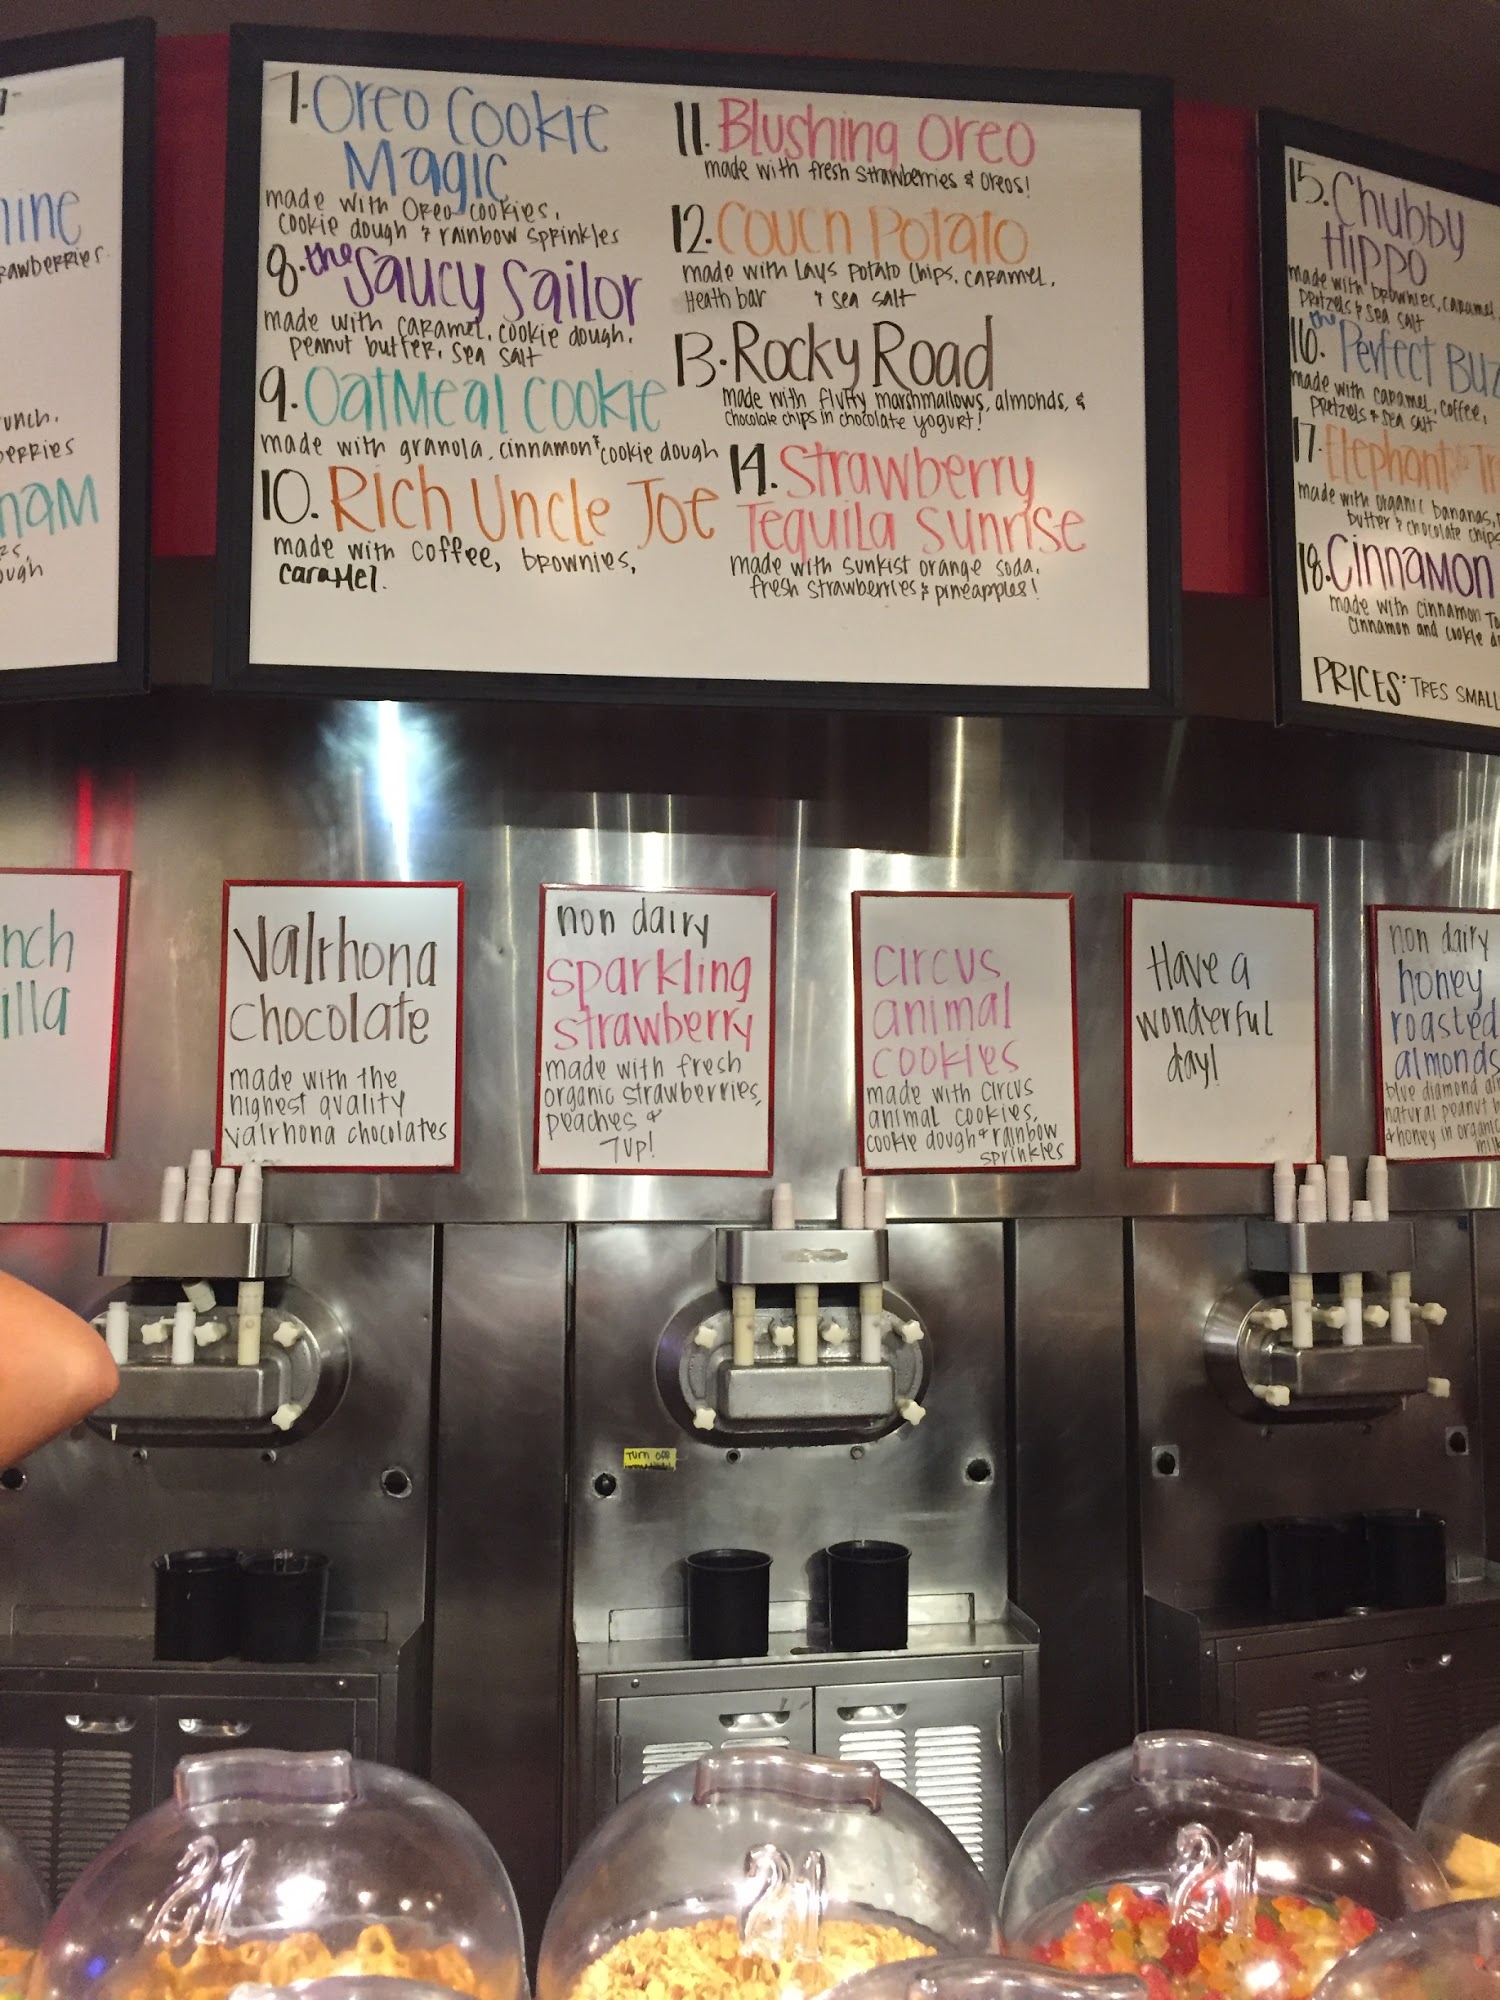 7. Oreo Cookie
Magic
made with Oreo cookies,
cookie dough & rainbow sprinkles
8. the Saucy Sailor
made with caramel, cookie dough,
peanut butter, sea salt
9. Oatmeal Cookie
made with granola, cinnamon & cookie dough
10. Rich Uncle Joe
made with coffee, brownies,
caramel.
11. Blushing Oreo
made with fresh strawberries & oreos!
12. Couch Potato
made with Lays potato chips, caramel,
Heath bar & sea salt
13. Rocky Road
made with fluffy marshmallows, almonds, &
chocolate chips in chocolate yogurt!
14. Strawberry
Tequila Sunrise
made with sunkist orange soda,
fresh strawberries & pineapples!
15. Chubby
Hippo
made with brownies, caramel,
pretzels & sea salt
16. the Perfect Buz
made with caramel, coffee,
pretzels & sea salt
17. Elephant Tr
made with organic bananas,
butter & chocolate chips
18. Cinnamon
made with cinnamon To
cinnamon and cookie d
PRICES: TRES SMALL
hine
rawberries
unch,
berries
ham
ough
nch
illa
Valrhona
chocolate
made with the
highest quality
valrhona chocolates
non dairy
sparkling
strawberry
made with fresh
organic strawberries,
peaches &
7up!
circus
animal
cookies
made with circus
animal cookies,
cookie dough & rainbow
sprinkles
Have a
wonderful
day!
non dairy
honey
roasted
almonds
blue diamond al
natural peanut b
& honey in organic
milk
Turn off
21
21
21